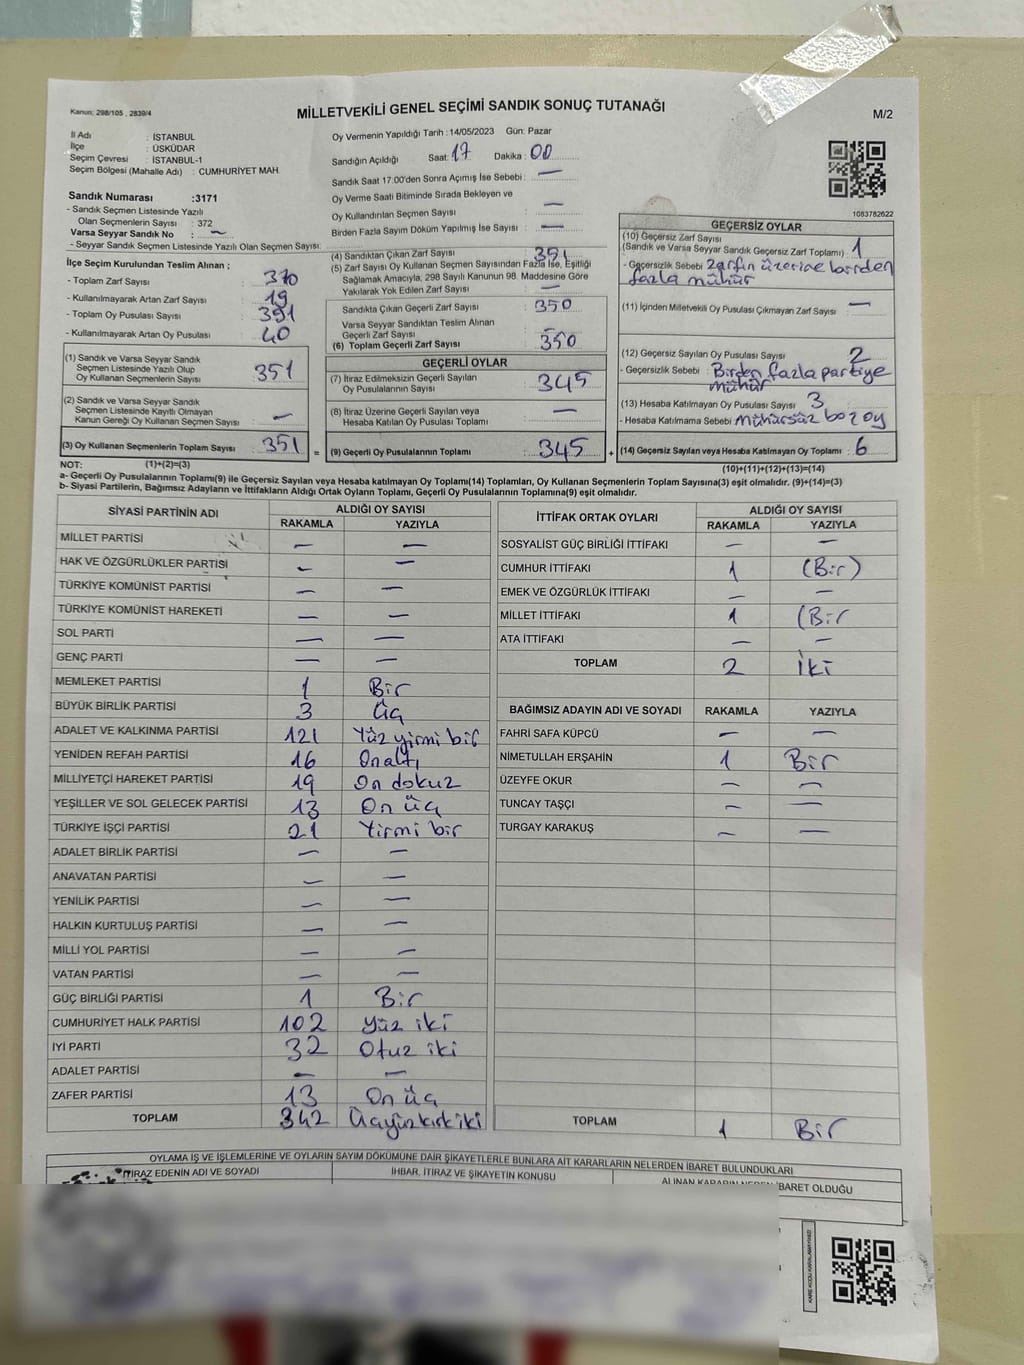 Kanun: 298/105 , 2839/4
MİLLETVEKİLİ GENEL SEÇİMİ SANDIK SONUÇ TUTANAĞI
M/2
İl Adı : İSTANBUL
İlçe : ÜSKÜDAR
Seçim Çevresi : İSTANBUL-1
Seçim Bölgesi (Mahalle Adı) : CUMHURİYET MAH.
Sandık Numarası :3171
- Sandık Seçmen Listesinde Yazılı
Olan Seçmenlerin Sayısı : 372
Varsa Seyyar Sandık No : —
- Seyyar Sandık Seçmen Listesinde Yazılı Olan Seçmen Sayısı:
İlçe Seçim Kurulundan Teslim Alınan ;
- Toplam Zarf Sayısı : 370
- Kullanılmayarak Artan Zarf Sayısı : 19
- Toplam Oy Pusulası Sayısı : 391
- Kullanılmayarak Artan Oy Pusulası : 40
(1) Sandık ve Varsa Seyyar Sandık
Seçmen Listesinde Yazılı Olup
Oy Kullanan Seçmenlerin Sayısı : 351
(2) Sandık ve Varsa Seyyar Sandık
Seçmen Listesinde Kayıtlı Olmayan
Kanun Gereği Oy Kullanan Seçmen Sayısı : —
(3) Oy Kullanan Seçmenlerin Toplam Sayısı : 351 =
Oy Vermenin Yapıldığı Tarih : 14/05/2023 Gün: Pazar
Sandığın Açıldığı Saat: 17 Dakika : 00
Sandık Saat 17:00'den Sonra Açımış İse Sebebi : —
Oy Verme Saati Bitiminde Sırada Bekleyen ve
Oy Kullandırılan Seçmen Sayısı : —
Birden Fazla Sayım Döküm Yapılmış İse Sayısı : —
(4) Sandıktan Çıkan Zarf Sayısı : 351
(5) Zarf Sayısı Oy Kullanan Seçmen Sayısından Fazla İse, Eşitliği
Sağlamak Amacıyla, 298 Sayılı Kanunun 98. Maddesine Göre
Yakılarak Yok Edilen Zarf Sayısı : —
Sandıkta Çıkan Geçerli Zarf Sayısı : 350
Varsa Seyyar Sandıktan Teslim Alınan
Geçerli Zarf Sayısı
(6) Toplam Geçerli Zarf Sayısı : 350
GEÇERLİ OYLAR
(7) İtiraz Edilmeksizin Geçerli Sayılan
Oy Pusulalarının Sayısı : 345
(8) İtiraz Üzerine Geçerli Sayılan veya
Hesaba Katılan Oy Pusulası Toplamı : —
(9) Geçerli Oy Pusulalarının Toplamı : 345 +
1083782622
GEÇERSİZ OYLAR
(10) Geçersiz Zarf Sayısı
(Sandık ve Varsa Seyyar Sandık Geçersiz Zarf Toplamı) : 1
- Geçersizlik Sebebi : Zarfın üzerine birden
fazla mühür
(11) İçinden Milletvekili Oy Pusulası Çıkmayan Zarf Sayısı : —
(12) Geçersiz Sayılan Oy Pusulası Sayısı : 2
- Geçersizlik Sebebi : Birden fazla partiye
mühür
(13) Hesaba Katılmayan Oy Pusulası Sayısı : 3
- Hesaba Katılmama Sebebi : mühürsüz boz oy
(14) Geçersiz Sayılan veya Hesaba Katılmayan Oy Toplamı : 6
NOT: (1)+(2)=(3)
(10)+(11)+(12)+(13)=(14)
a- Geçerli Oy Pusulalarının Toplamı(9) ile Geçersiz Sayılan veya Hesaba katılmayan Oy Toplamı(14) Toplamları, Oy Kullanan Seçmenlerin Toplam Sayısına(3) eşit olmalıdır. (9)+(14)=(3)
b- Siyasi Partilerin, Bağımsız Adayların ve İttifakların Aldığı Ortak Oyların Toplamı, Geçerli Oy Pusulalarının Toplamına(9) eşit olmalıdır.
SİYASİ PARTİNİN ADI ALDIĞI OY SAYISI
RAKAMLA YAZIYLA
MİLLET PARTİSİ — —
HAK VE ÖZGÜRLÜKLER PARTİSİ — —
TÜRKİYE KOMÜNİST PARTİSİ — —
TÜRKİYE KOMÜNİST HAREKETİ — —
SOL PARTİ — —
GENÇ PARTİ — —
MEMLEKET PARTİSİ 1 Bir
BÜYÜK BİRLİK PARTİSİ 3 üç
ADALET VE KALKINMA PARTİSİ 121 Yüz yirmi bir
YENİDEN REFAH PARTİSİ 16 On altı
MİLLİYETÇİ HAREKET PARTİSİ 19 On dokuz
YEŞİLLER VE SOL GELECEK PARTİSİ 13 On üç
TÜRKİYE İŞÇİ PARTİSİ 21 Yirmi bir
ADALET BİRLİK PARTİSİ — —
ANAVATAN PARTİSİ — —
YENİLİK PARTİSİ — —
HALKIN KURTULUŞ PARTİSİ — —
MİLLİ YOL PARTİSİ — —
VATAN PARTİSİ — —
GÜÇ BİRLİĞİ PARTİSİ 1 Bir
CUMHURİYET HALK PARTİSİ 102 Yüz iki
İYİ PARTİ 32 Otuz iki
ADALET PARTİSİ — —
ZAFER PARTİSİ 13 On üç
TOPLAM 342 Üçyüzkırkiki
İTTİFAK ORTAK OYLARI ALDIĞI OY SAYISI
RAKAMLA YAZIYLA
SOSYALİST GÜÇ BİRLİĞİ İTTİFAKI — —
CUMHUR İTTİFAKI 1 (Bir)
EMEK VE ÖZGÜRLÜK İTTİFAKI — —
MİLLET İTTİFAKI 1 (Bir
ATA İTTİFAKI — —
TOPLAM 2 İki
BAĞIMSIZ ADAYIN ADI VE SOYADI RAKAMLA YAZIYLA
FAHRİ SAFA KÜPCÜ — —
NİMETULLAH ERŞAHİN 1 Bir
ÜZEYFE OKUR — —
TUNCAY TAŞÇI — —
TURGAY KARAKUŞ — —
TOPLAM 1 Bir
OYLAMA İŞ VE İŞLEMLERİNE VE OYLARIN SAYIM DÖKÜMÜNE DAİR ŞİKAYETLERLE BUNLARA AİT KARARLARIN NELERDEN İBARET BULUNDUKLARI
İTİRAZ EDENİN ADI VE SOYADI
İHBAR, İTİRAZ VE ŞİKAYETİN KONUSU
ALINAN KARARIN NEDEN İBARET OLDUĞU